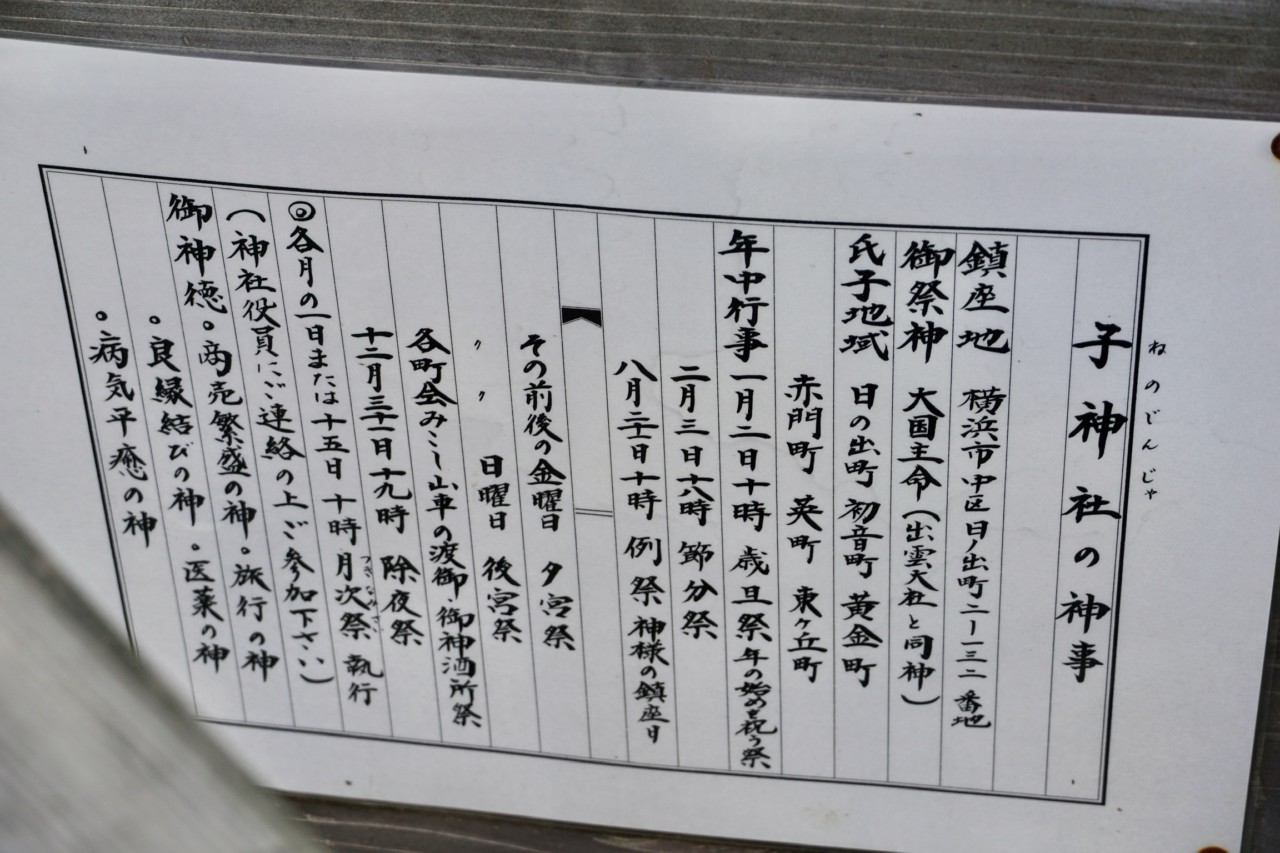 子神社の神事
ねのじんじゃ
鎮座地 横浜市中区日ノ出町二ー一三二番地
御祭神 大国主命(出雲大社と同神)
氏子地域 日の出町 初音町 黄金町
赤門町 英町 東ヶ丘町
年中行事 一月二日十時 歳旦祭 年の始めを祝う祭
二月三日十八時 節分祭
八月二十日十時 例祭 神様の鎮座日
その前後の金曜日 夕宮祭
〃 〃 日曜日 後宮祭
各町会みこし山車の渡御・御神酒所祭
十二月三十一日十九時 除夜祭
◎各月の一日または十五日 十時 月次祭 執行
つきなみさい
(神社役員にご連絡の上ご参加下さい)
御神徳・商売繁盛の神・旅行の神
・良縁結びの神・医薬の神
・病気平癒の神